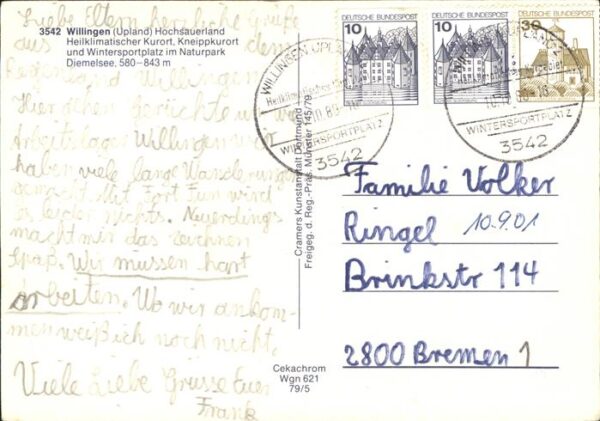 Liebe Eltern herzliche Grüße
aus dem
3542 Willingen (Upland) Hochsauerland
Heilklimatischer Kurort, Kneippkurort
und Wintersportplatz im Naturpark
Diemelsee, 580–843 m
Willingen
Hier gerüchte
Arbeitslager Willingen. Wir
haben viele lange Wanderungen
gemacht. Mit Fort Fun wird
es leider nichts. Neuerdings
macht mir das zeichnen
Spaß. Wir müssen hart
arbeiten. Wo wir ankom-
men weiß ich noch nicht.
Viele Liebe Grüsse Euer
Frank
Cramers Kunstanstalt Dortmund
Freigeg. d. Reg.-Präs. Münster 145/79
Cekachrom
Wgn 621
79/5
DEUTSCHE BUNDESPOST
10
DEUTSCHE BUNDESPOST
10
DEUTSCHE BUNDESPOST
30
WILLINGEN UPLAND
Heilklimatischer
WINTERSPORTPLATZ
3542
WINTERSPORTPLATZ
3542
Familie Volker
Ringel 10.9.01
Brinkstr 114
2800 Bremen 1